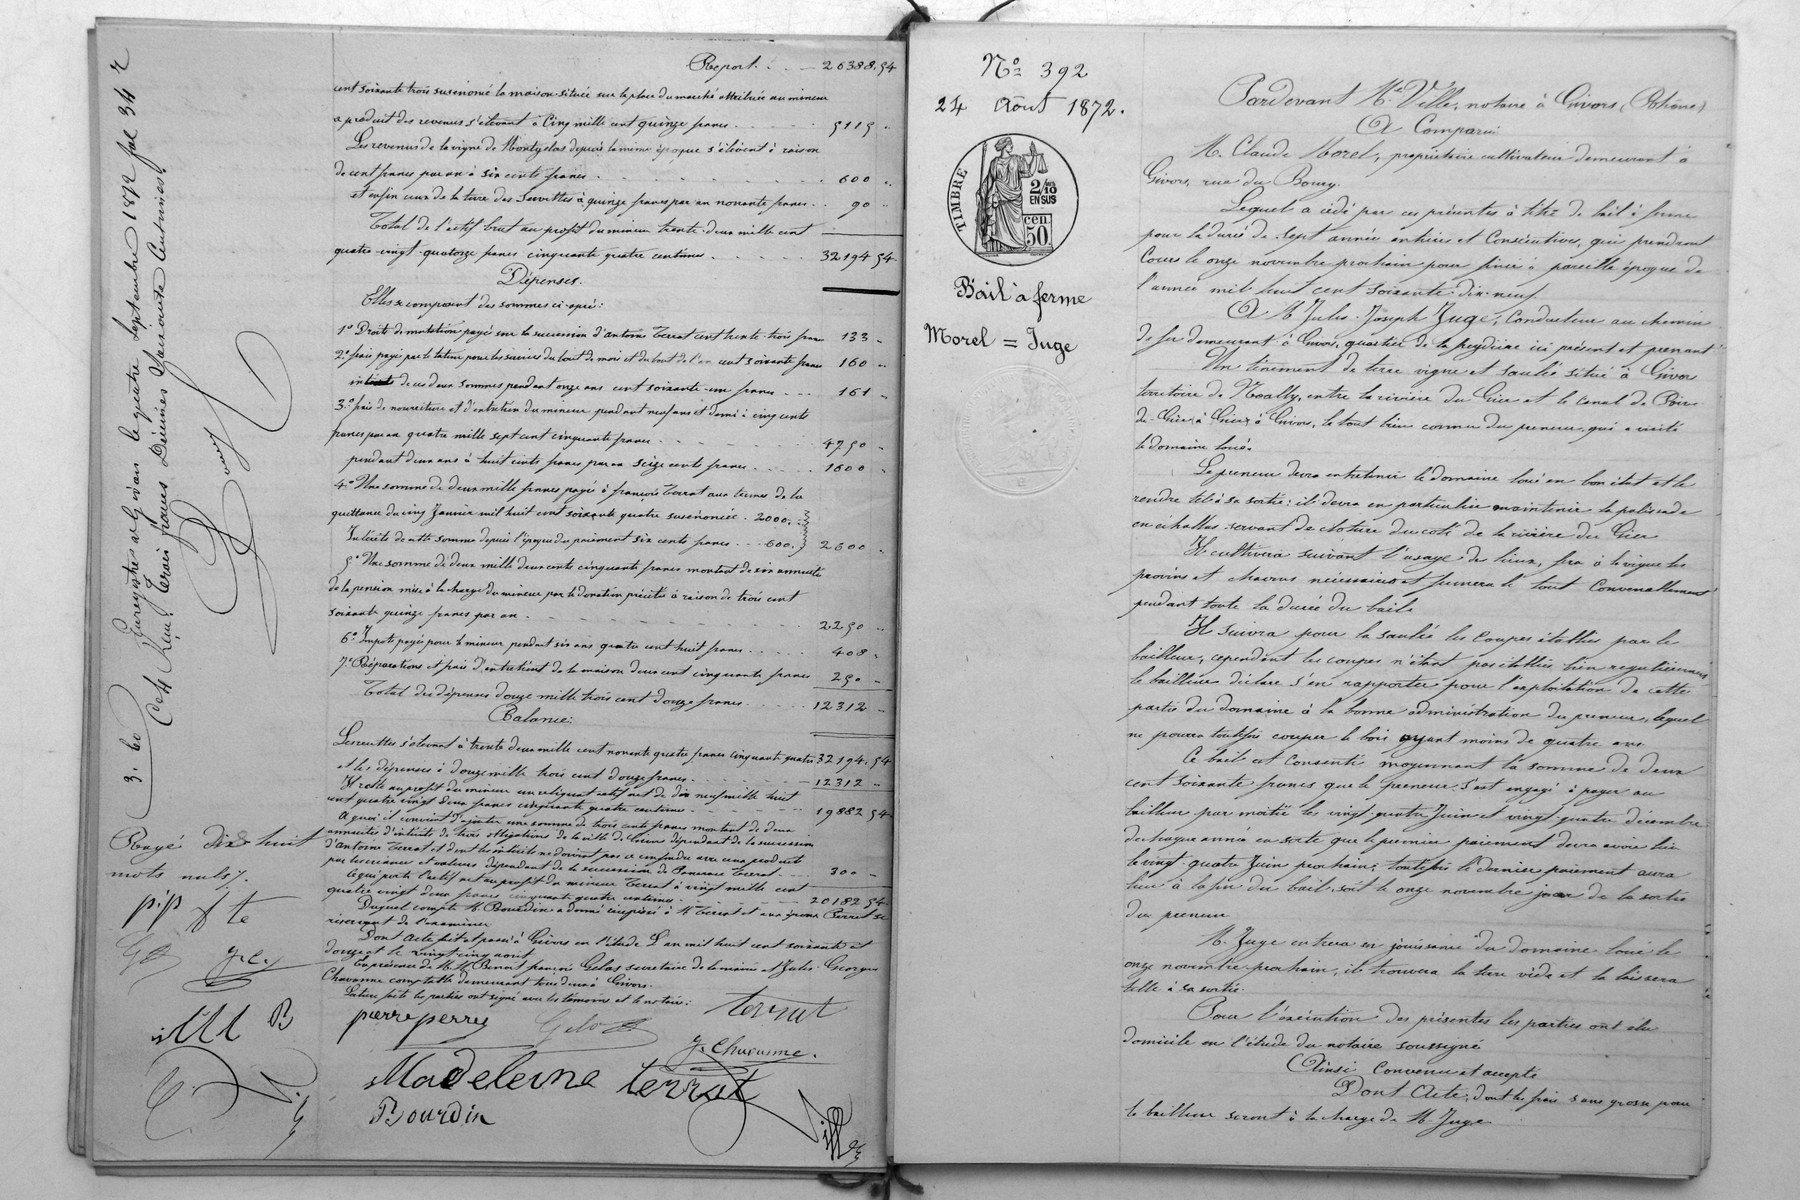 Report . . — 26388.54
cent soixante trois susénoncé la maison située sur la place du marché attribuée au mineur
a produit des revenus s'élevant à Cinq mille cent quinze francs . . . . 5115 "
Les revenus de la vigne de Montgelas depuis la même époque s'élèvent à raison
de cent francs par an à six cents francs . . . . . . 600 "
et enfin ceux de la terre des à quinze francs par an nonante francs . . 90 "
Total de l'actif brut au profit du mineur trente deux mille cent
quatre-vingt-quatorze francs cinquante quatre centimes . . . . 32194 54
Dépenses.
Elles se composent des sommes ci-après :
1° Droits de mutation payés sur la succession d'antoine Terrat cent trente-trois francs 133 "
2° frais payés par le tuteur pour les services du bout de mois et du bout de l'an cent soixante francs 160 "
intérêt de ces deux sommes pendant onze ans cent soixante-un francs . . . 161 "
3° frais de nourriture et d'entretien du mineur pendant neuf ans et demi à cinq cents
francs par an quatre mille sept cent cinquante francs . . . . . 4750 "
pendant deux ans à huit cents francs par an seize cents francs . . . . 1600 "
4° Une somme de deux mille francs payée à françois Terrat aux termes de la
quittance du cinq Janvier mil huit cent soixante quatre susénoncée . 2000 . "
Intérêts de cette somme depuis l'époque du paiement six cents francs . . . 600 . " 2600 "
5° Une somme de deux mille deux cents cinquante francs montant de six annuités
de la pension mise à la charge du mineur par la donation précitée à raison de trois cent
soixante quinze francs par an . . . . . . . . 2250 "
6° Impots payés pour le mineur pendant six ans quatre cent huit francs . . . . 408 "
7° Réparations et frais d'entretient de la maison deux cent cinquante francs 250 "
Total des dépenses douze mille trois cent douze francs . . . . 12312 "
Balance :
Les recettes s'élevant à trente deux mille cent nonante quatre francs cinquante quatre 32194.54
et les dépenses à douze mille trois cent douze francs . . . . . 12312 "
Il reste au profit du mineur un reliquat actif net de dix neuf mille huit
cent quatre vingt deux francs cinquante quatre centimes . . . . 19882 54
A quoi il convient d'ajouter une somme de trois cents francs montant de deux
annuités d'intérêts de trois obligations de la ville de dépendant de la succession
d'Antoine Terrat et dont les intérêts ne doivent pas se confondre avec ceux produits
par les créances et valeurs dépendant de la succession de Terrat . . . 300 "
Ce qui porte l'actif net au profit du mineur Terrat à vingt mille cent
quatre vingt deux francs cinquante quatre centimes . . . . 20182 54
Duquel compte M. Bourdin a donné récépissé à M Terrat et aux époux Perret se
réservant de l'examiner
Dont Acte fait et passé à Givors en l'étude L'an mil huit cent soixante et
douze et le vingt cinq août
En présence de M. M. Benoit françois Gelas secretaire de la mairie et Jules Georges
Chavanne comptable demeurant tous deux à Givors.
Lecture faite les parties ont signé avec les témoins et le notaire :
pierre perret Gelas Terrat
J. Chavanne.
Madeleine terrat
Bourdin Ville
Enregistré à Givors le quatre Septembre 1872 fol 34 r
C. 4 Reçu Trois francs Décimes Soixante Centimes
3. 60
Rayé dix huit
mots nuls
N° 392
24 Août 1872.
TIMBRE
2/10 EN SUS
50 cen
Bail à ferme
Morel = Juge
Pardevant Me Ville, notaire à Givors (Rhône)
A Comparu :
M. Claude Morel, propriétaire cultivateur demeurant à
Givors, rue du Bourg.
Lequel a cédé par ces présentes à titre de bail à ferme
pour la durée de sept années entières et Consécutives, qui prendront
Cours le onze novembre prochain pour finir à pareille époque de
l'année mil huit cent soixante-dix-neuf.
A M Jules Joseph Juge, Conducteur au chemin
de fer demeurant à Givors, quartier de la ici présent et prenant
Un tènement de terre vigne et saulée situé à Givors
territoire de entre la rivière du Gier et le Canal de Rive
de-Gier à Givors, le tout bien connu du preneur, qui a visité
le domaine loué.
Le preneur devra entretenir le domaine loué en bon état et le
rendre tel à sa sortie : il devra en particulier maintenir la palissade
en échallas servant de cloture du coté de la rivière du Gier
Il cultivera suivant l'usage des lieux, fera à la vigne les
provins et nécessaires et fumera le tout Convenablement
pendant toute la durée du bail.
Il suivra pour la saulée les Coupes établies par le
bailleur, cependant les coupes n'étant pas établies bien regulièrement
le bailleur déclare s'en rapporter pour l'exploitation de cette
partie du domaine à la bonne administration du preneur, lequel
ne pourra toutefois couper le bois ayant moins de quatre ans
Ce bail est Consenti moyennant la somme de deux
cent soixante francs que le preneur s'est engagé à payer au
bailleur par moitié les vingt quatre Juin et vingt quatre décembre
de chaque année en sorte que le premier paiement devra avoir lieu
le vingt-quatre Juin prochain ; toutefois le dernier paiement aura
lieu à la fin du bail, soit le onze novembre jour de la sortie
du preneur
M. Juge entrera en jouissance du domaine loué le
onze novembre prochain, il trouvera la terre vide et la laissera
telle à sa sortie.
Pour l'exécution des présentes les parties ont élu
domicile en l'étude du notaire soussigné
Ainsi Convenu et accepté
Dont Acte, dont les frais sans grosse pour
le bailleur seront à la charge de M. Juge